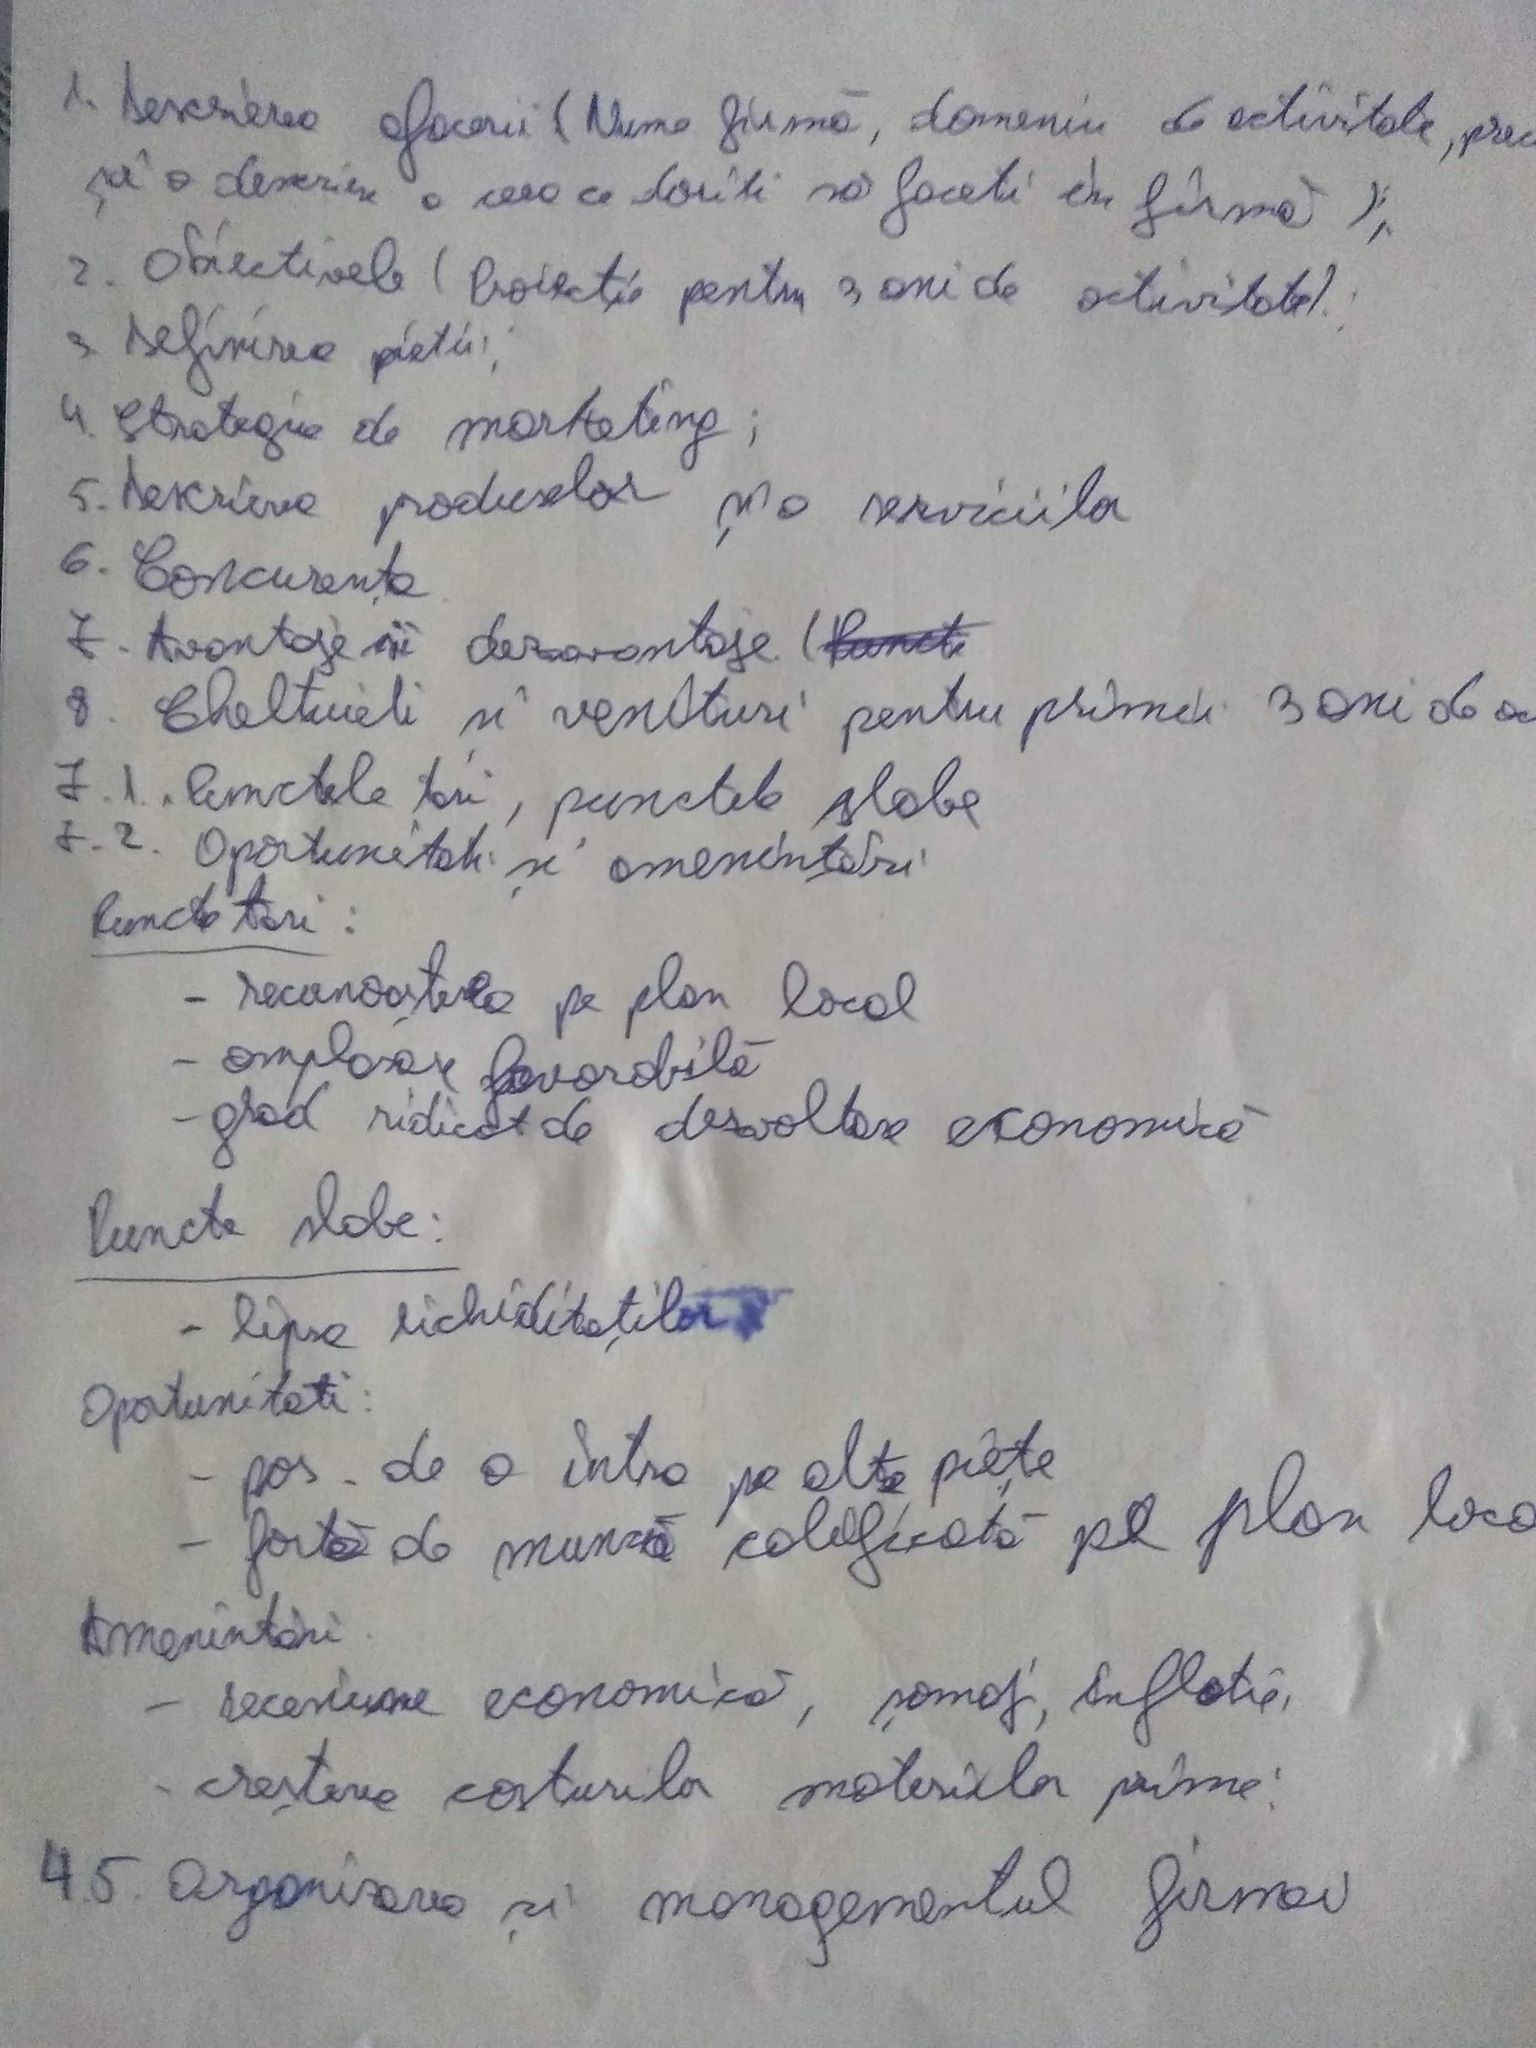 1. Descrierea afacerii (Nume firmă, domeniu de activitate, prec
și o descriere a ceea ce doriti să faceti în firmă);
2. Obiectivele (Proiectie pentru 3 ani de activitate).;
3. Definirea pietii;
4. Strategia de marketing;
5. Descrierea produselor și a serviciilor
6. Concurența
7. Avantaje si dezavantaje (
8. Cheltuieli si venituri pentru primii 3 ani de ac
7.1. Punctele tari, punctele slabe
7.2. Oportunitati și amenințări
Puncte tari:
- recunoașterea pe plan local
- amplasare favorabilă
- grad ridicat de dezvoltare economică
Puncte slabe:
- lipsa lichiditaților
Oportunitati:
- pos. de a intra pe alte piețe
- fortă de muncă calificată pe plan loca
Amenintări
- recesiune economică, șomaj, inflatie,
- creșterea costurilor materiilor prime:
4.5. Organizarea și managementul firmei